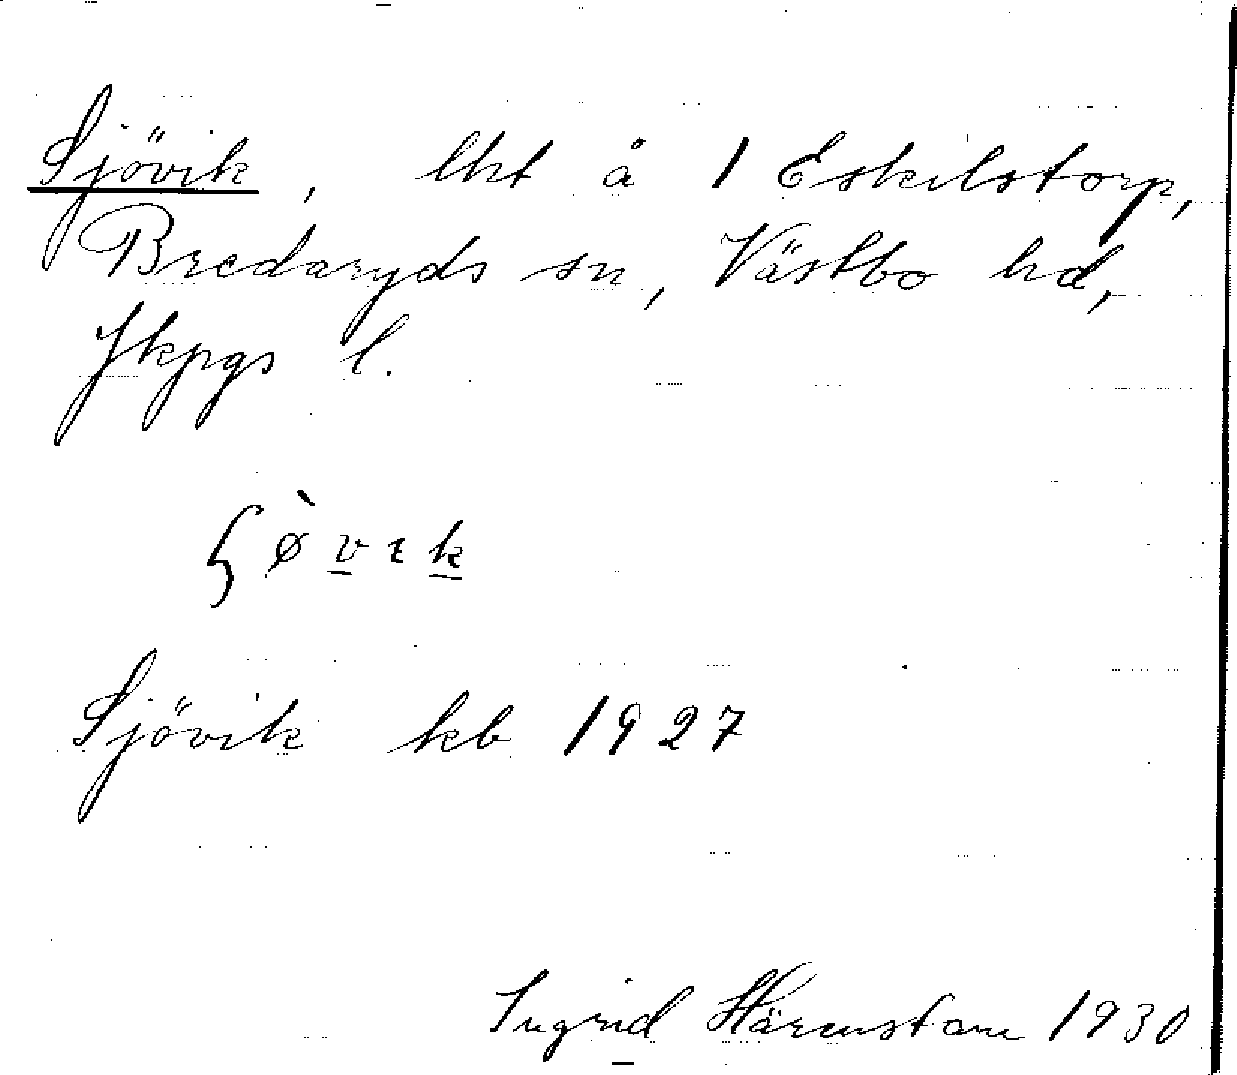 Sjövik, lht å 1 Eskilstorp,
Bredaryds sn, Västbo hd,
Jkpgs l.
ɧøv̲ɩk̲
Sjövik kb 1927
Ingrid Härenstam 1930